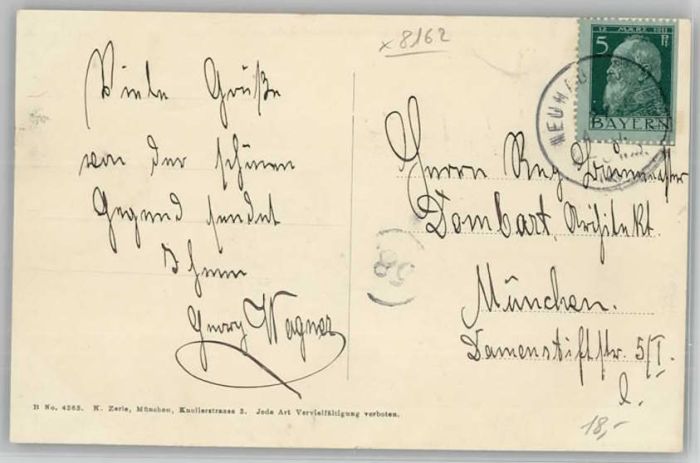 x 8162
Viele Grüße
von der schönen
Gegend sendet
Ihnen
Georg Wagner
12 MÄRZ 1911
5 Pf
BAYERN
NEUHAU
Herrn Reg. Baumeister
Dombart, Architekt.
München.
Damenstiftstr. 5/I.
l.
58
18,-
D No. 4263. N. Zerle, München, Knollerstrasse 2. Jede Art Vervielfältigung verboten.